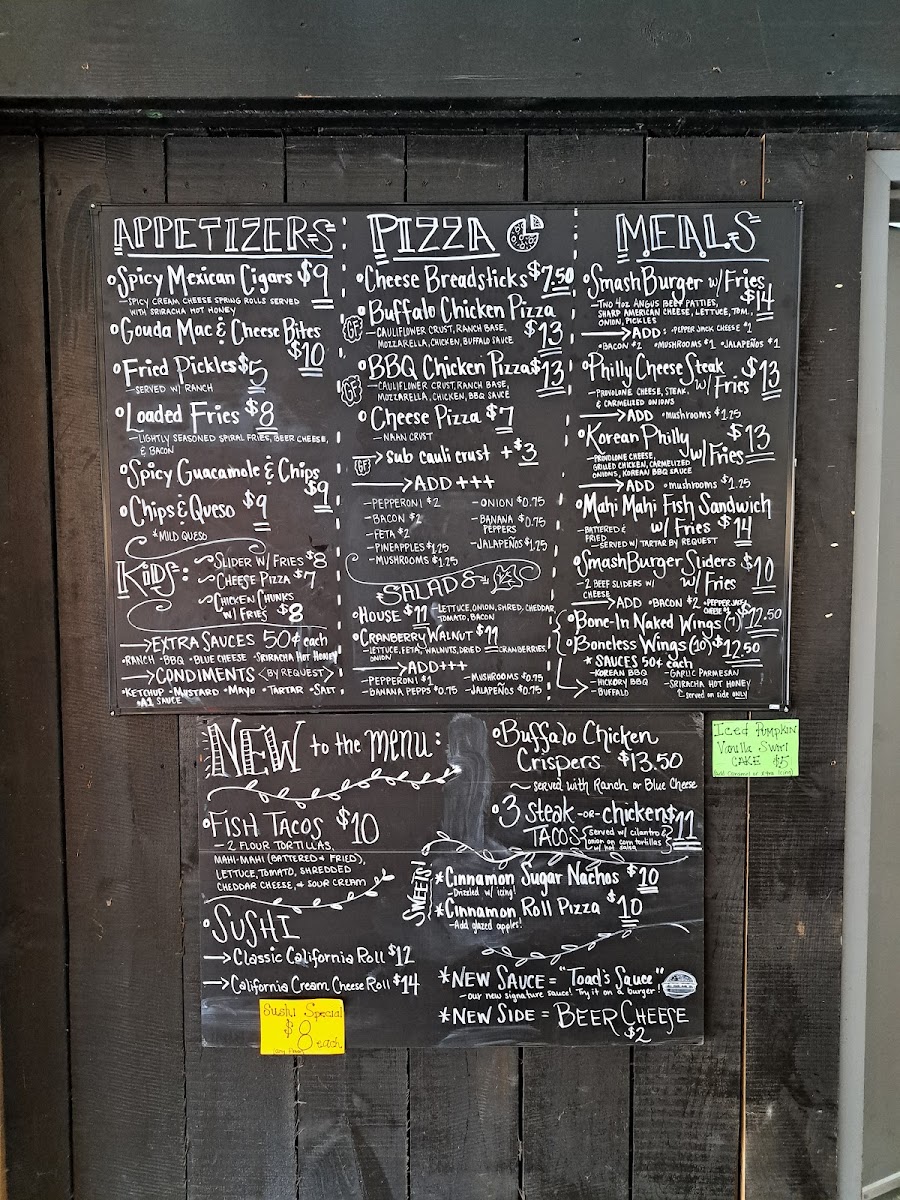 APPETIZERS
Spicy Mexican Cigars $9
- SPICY CREAM CHEESE SPRING ROLLS SERVED
WITH SRIRACHA HOT HONEY
Gouda Mac & Cheese Bites
$10
Fried Pickles $5
- SERVED W/ RANCH
Loaded Fries $8
- LIGHTLY SEASONED SPIRAL FRIES, BEER CHEESE,
& BACON
Spicy Guacamole & Chips
$9
Chips & Queso $9
*MILD QUESO
KIDS:
SLIDER W/ FRIES $8
CHEESE PIZZA $7
CHICKEN CHUNKS
W/ FRIES $8
EXTRA SAUCES 50¢ each
• RANCH • BBQ • BLUE CHEESE • SRIRACHA HOT HONEY
CONDIMENTS <BY REQUEST>
• KETCHUP • MUSTARD • MAYO • TARTAR • SALT
• A1 SAUCE
PIZZA
Cheese Breadsticks $7.50
Buffalo Chicken Pizza
GF
- CAULIFLOWER CRUST, RANCH BASE,
MOZZARELLA, CHICKEN, BUFFALO SAUCE
$13
BBQ Chicken Pizza $13
GF
- CAULIFLOWER CRUST, RANCH BASE,
MOZZARELLA, CHICKEN, BBQ SAUCE
Cheese Pizza $7
- NAAN CRUST
GF sub cauli crust +$3
ADD +++
- PEPPERONI $2
- BACON $2
- FETA $2
- PINEAPPLES $1.25
- MUSHROOMS $1.25
- ONION $0.75
- BANANA $0.75
PEPPERS
- JALAPEÑOS $1.25
SALADS
HOUSE $11 - LETTUCE, ONION, SHRED. CHEDDAR,
TOMATO, BACON
CRANBERRY WALNUT $11
- LETTUCE, FETA, WALNUTS, DRIED CRANBERRIES,
ONION
ADD+++
- PEPPERONI $1
- BANANA PEPPS $0.75
- MUSHROOMS $0.75
- JALAPEÑOS $0.75
MEALS
SmashBurger w/ Fries
$14
- TWO 4OZ ANGUS BEEF PATTIES,
SHARP AMERICAN CHEESE, LETTUCE, TOM.,
ONION, PICKLES
ADD: • PEPPER JACK CHEESE $1
• BACON $2 • MUSHROOMS $1 • JALAPEÑOS $1
Philly Cheese Steak
w/ Fries $13
- PROVOLONE CHEESE, STEAK,
& CARMELIZED ONIONS
ADD • MUSHROOMS $1.25
Korean Philly $13
w/ Fries
- PROVOLONE CHEESE,
GRILLED CHICKEN, CARMELIZED
ONIONS, KOREAN BBQ SAUCE
ADD • MUSHROOMS $1.25
Mahi Mahi Fish Sandwich
w/ Fries $14
- BATTERED &
FRIED
- SERVED W/ TARTAR BY REQUEST
SmashBurger Sliders $10
w/ Fries
- 2 BEEF SLIDERS W/
CHEESE
ADD • BACON $2 • PEPPER JACK
CHEESE $1
Bone-In Naked Wings (7) $12.50
Boneless Wings (10) $12.50
* SAUCES 50¢ each
- KOREAN BBQ
- HICKORY BBQ
- BUFFALO
- GARLIC PARMESAN
- SRIRACHA HOT HONEY
served on side ONLY
NEW to the MENU:
FISH TACOS $10
- 2 FLOUR TORTILLAS,
MAHI-MAHI (BATTERED & FRIED),
LETTUCE, TOMATO, SHREDDED
CHEDDAR CHEESE, & SOUR CREAM
SUSHI
Classic California Roll $12
California Cream Cheese Roll $14
Sushi Special
$8 each
Buffalo Chicken
Crispers $13.50
served with Ranch or Blue Cheese
3 Steak -OR- chicken $11
TACOS served w/ cilantro &
onion on corn tortillas
w/ hot salsa
SWEETS!
*Cinnamon Sugar Nachos $10
- Drizzled w/ icing!
*Cinnamon Roll Pizza $10
- Add glazed apples!
*NEW SAUCE = "Toad's Sauce"
- our new signature sauce! Try it on a burger!
*NEW SIDE = BEER CHEESE
$2
Iced Pumpkin
Vanilla Swirl
CAKE $5